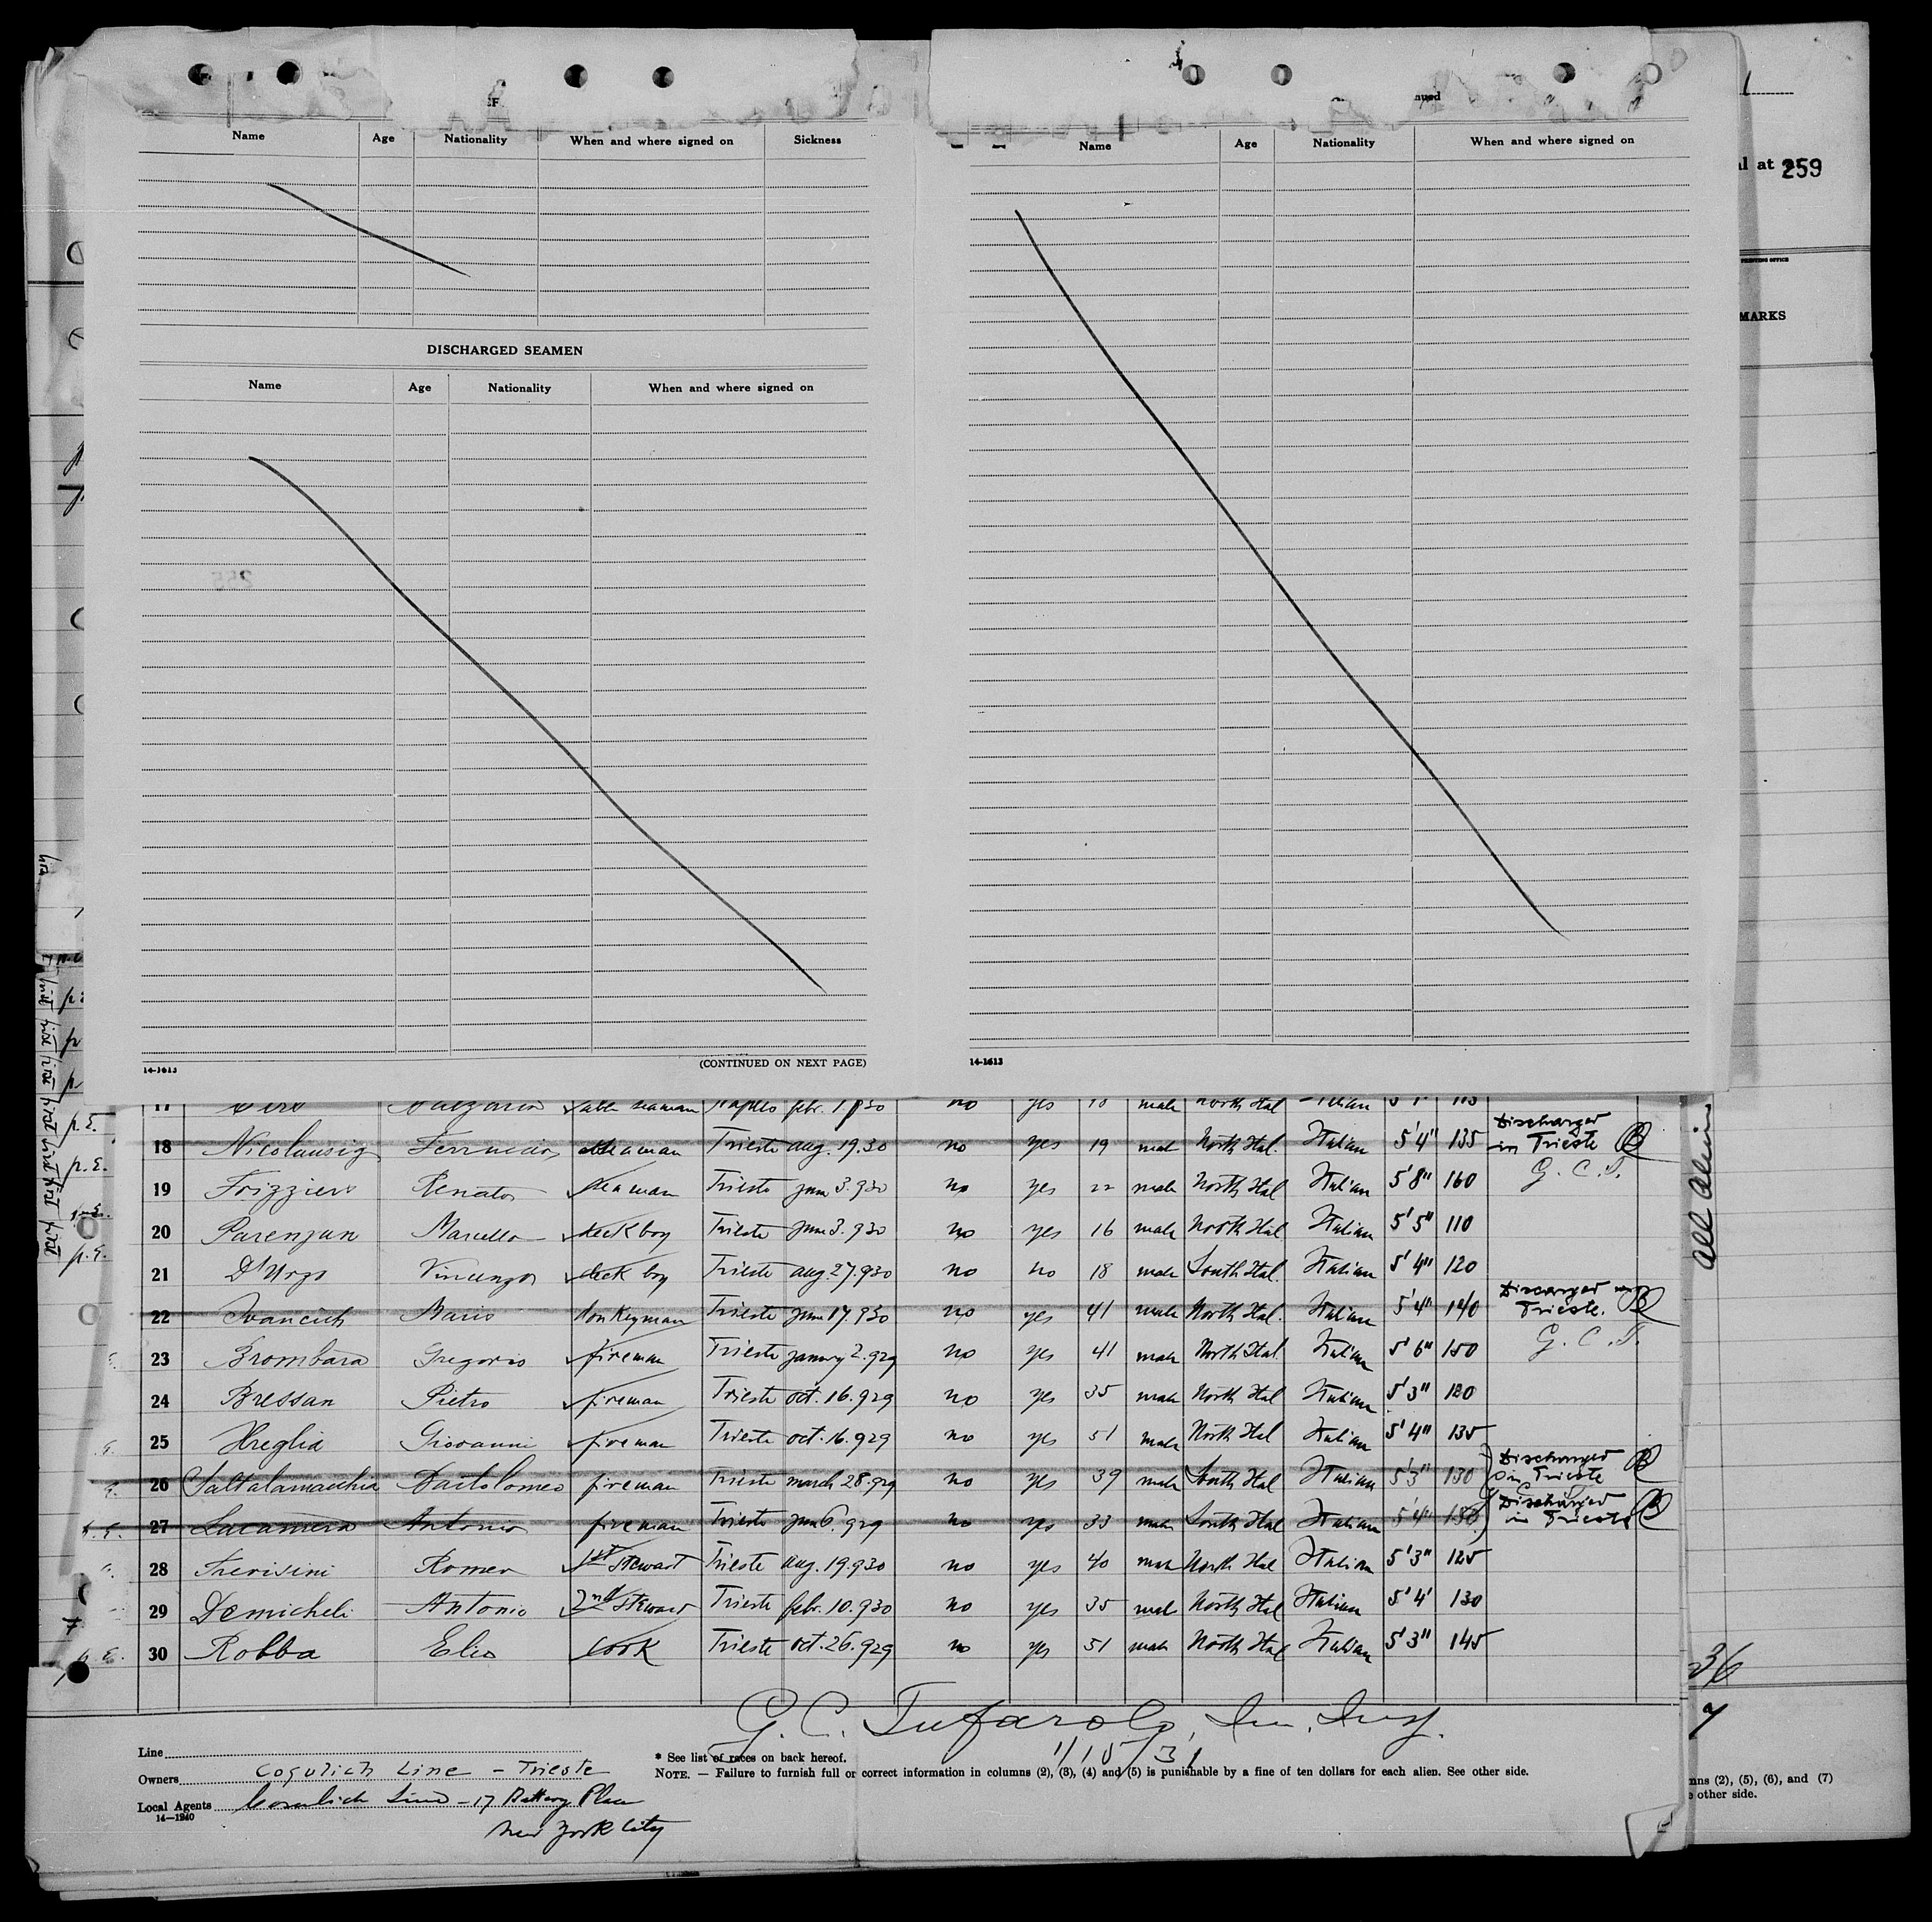 259
Name Age Nationality When and where signed on Sickness
DISCHARGED SEAMEN
Name Age Nationality When and where signed on
(CONTINUED ON NEXT PAGE)
14-1613
nued
Name Age Nationality When and where signed on
14-1613
l at
PRINTING OFFICE
MARKS
all aliens
17 able seaman Naples febr. 1. 930 no yes 18 male North Ital Italian 5'1" 115
18 Nicolausig Ferruccio seaman Trieste aug. 19.30 no yes 19 male North Ital. Italian 5'4" 135 Discharged in Trieste
19 Frizziero Renato seaman Trieste june 3.930 no yes 22 male North Ital Italian 5'8" 160 G. C. T.
20 Parenzan Marcello deck boy Trieste june 3.930 no yes 16 male North Ital Italian 5'5" 110
21 D'Urzo Vincenzo deck boy Trieste aug. 27.930 no no 18 male South Ital. Italian 5'4" 120
22 Ivancich Mario donkeyman Trieste june 17.930 no yes 41 male North Ital. Italian 5'4" 140 Discarged in Trieste.
23 Brombara Gregorio fireman Trieste january 2.929 no yes 41 male North Ital. Italian 5'6" 150 G. C. T.
24 Bressan Pietro fireman Trieste oct. 16.929 no yes 35 male North Ital Italian 5'3" 180
25 Hreglia Giovanni fireman Trieste oct. 16.929 no yes 51 male North Ital Italian 5'4" 135
26 Saltalamacchia Bartolomeo fireman Trieste march 28.929 no yes 39 male South Ital Italian 5'3" 130 Discharged in Trieste
27 Lacamera Antonio fireman Trieste june 6.929 no yes 33 male South Ital Italian 5'4" 150 Discharged in Trieste
28 Trevisini Romeo 1st Stewart Trieste aug. 19.930 no yes 40 male North Ital Italian 5'3" 125
29 Demicheli Antonio 2nd Stewart Trieste febr. 10.930 no yes 35 male North Ital Italian 5'4' 130
30 Robba Elio Cook Trieste oct. 26.929 no yes 51 male North Ital Italian 5'3" 145
36
7
G. C. Tufarolo, Im. Insp.
1/15/31
Line
Owners Cosulich Line - Trieste
Local Agents Cosulich Line - 17 Battery Place
New York City
14-1240
* See list of races on back hereof.
NOTE. — Failure to furnish full or correct information in columns (2), (3), (4) and (5) is punishable by a fine of ten dollars for each alien. See other side.
mns (2), (5), (6), and (7)
e other side.